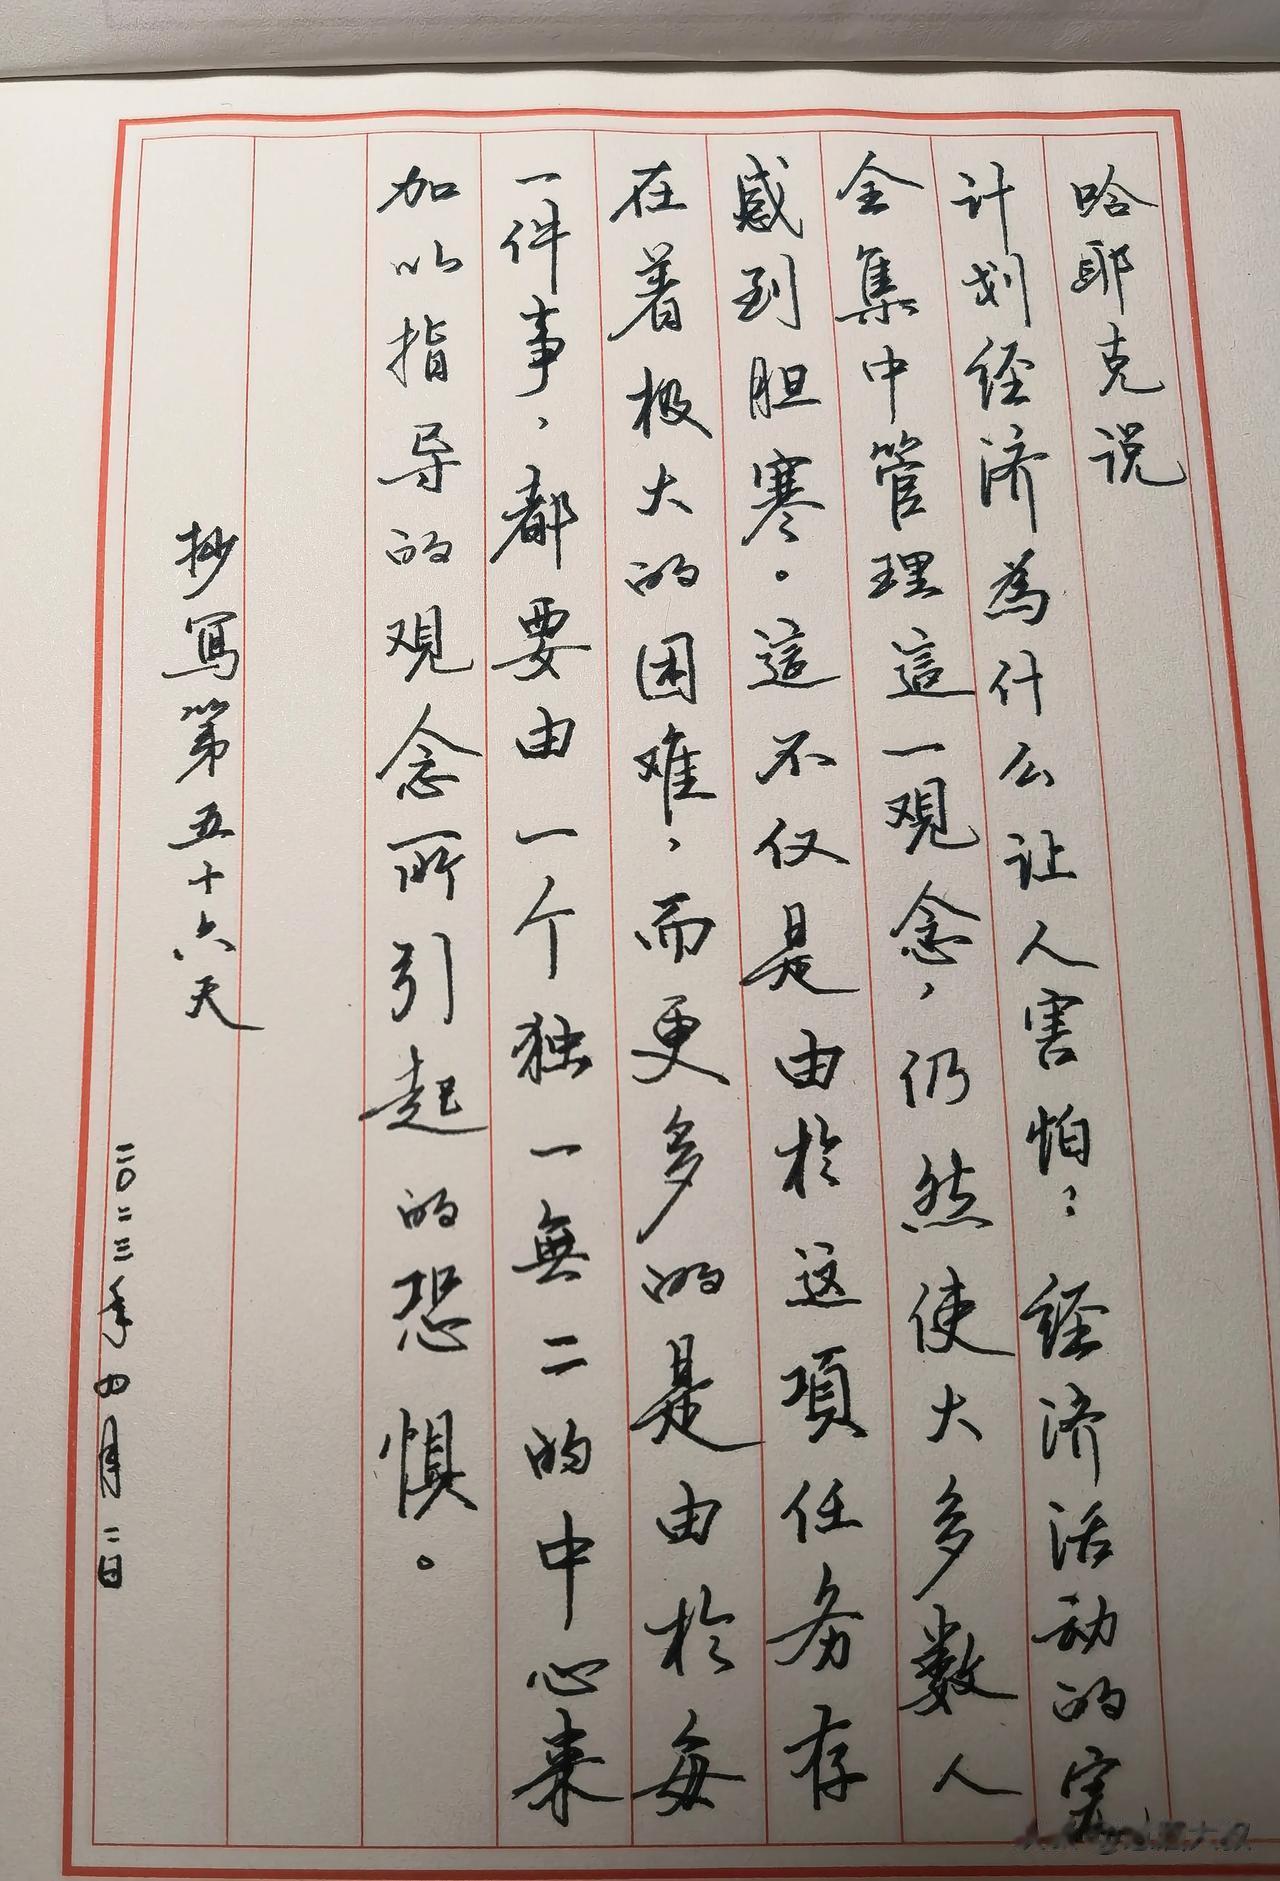 哈耶克说
计划经济為什么让人害怕：经济活动的完
全集中管理這一覌念，仍然使大多数人
感到胆寒。這不仅是由於这項任务存
在着极大的困难，而更多的是由於每
一件事，都要由一个独一無二的中心来
加以指导的覌念所引起的恐惧。
抄冩第五十六天
二〇二三年四月二日